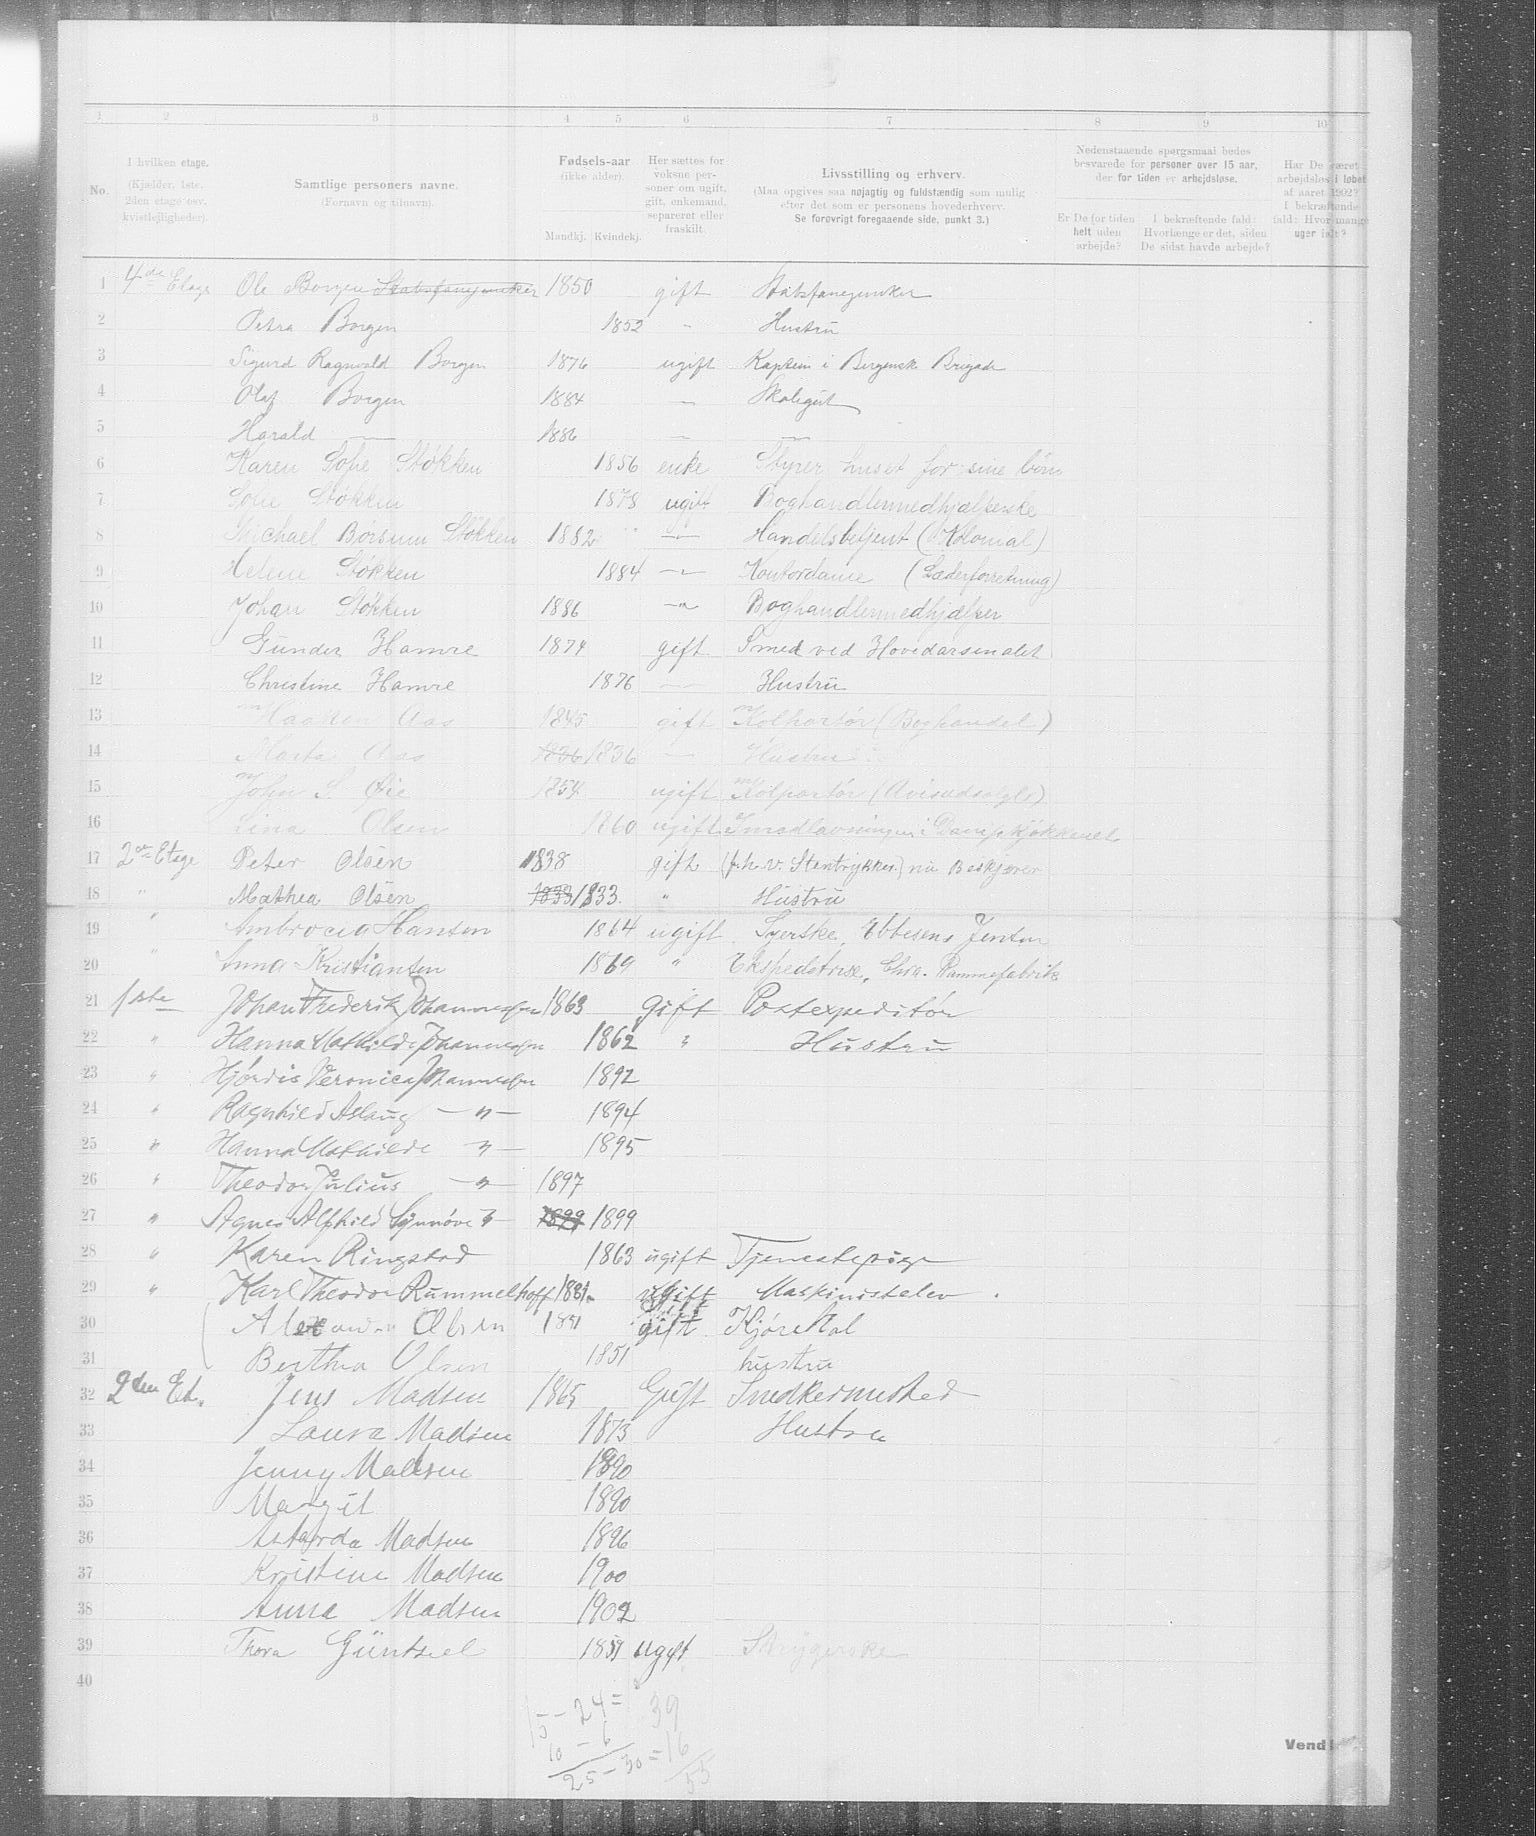 1 2 3 4 5 6 7 8 9 10
No. I hvilken etage. (Kjælder, 1ste, 2den etage osv. kvistlejligheder). Samtlige personers navne. (Fornavn og tilnavn). Fødsels-aar (ikke alder). Mandkj. Kvindekj. Her sættes for voksne personer om ugift, gift, enkemand, separeret eller fraskilt. Livsstilling og erhverv. (Maa opgives saa nøjagtig og fuldstændig som mulig efter det som er personens hovederhverv. Se forøvrigt foregaaende side, punkt 3.) Nedenstaaende spørgsmaal bedes besvarede for personer over 15 aar, der for tiden er arbejdsløse. Er De for tiden helt uden arbejde? I bekræftende fald: Hvorlænge er det, siden De sidst havde arbejde? Har De været arbejdsløs i løbet af aaret 1902? I bekræftende fald: Hvor mange uger ialt?
1 4de Etage Ole Borgen Stabsfanejunker 1850 gift Stabsfanejunker
2 Petra Borgen 1852 " Hustru
3 Sigurd Ragnvald Borgen 1876 ugift Kaptein i Bergensk Brigade
4 Olaf Borgen 1884 — Skolegut
5 Harald — 1886 — —
6 Karen Sofie Støkken 1856 enke Styrer huset for sine børn
7 Sofie Støkken 1878 ugift Boghandlermedhjælperske
8 Michael Børsum Støkken 1882 —"— Handelsbetjent (Kolonial)
9 Helene Støkken 1884 —"— Kontordame (Læderforretning)
10 Johan Støkken 1886 —"— Boghandlermedhjælper
11 Gunder Hamre 1874 gift Smed ved Hovedarsenalet
12 Christine Hamre 1876 — Hustru
13 Haaken Aas 1845 gift Kolportør (Boghandel)
14 Marta Aas 1836 1836 — Hustru
15 John S. Øie 1854 ugift Kolportør (Avisudsalgb)
16 Lina Olsen 1860 ugift i Dampkjøkkenet
17 2en Etage Peter Olsen 1838 gift (f.h.v. Stentrykker) nu Beskjærer
18 " Mathea Olsen 1833 1833. " Hustru
19 " Ambrocia Hansen 1864 ugift Syerske, Ebbesens
20 " Anna Kristiansen 1869 " Ekspeditrise, Chra. Rammefabrik
21 1ste Johan Frederik Johannessen 1863 gift Postexpeditør
22 " Hanna Mathilde Johannessen 1862 " Hustru
23 " Hjørdis Veronica Johannessen 1892
24 " Ragnhild Aslaug —"— 1894
25 " Hanna Mathilde —"— 1895
26 " Theodor Julius —"— 1897
27 " Agnes Alfhild Synnøve " 1899 1899
28 " Karen Ringstad 1863 ugift Tjenestepige
29 " Karl Theodor Rummelhoff 1881. ugift Maskinistelev.
30 Olsen 1851 gift Kjørekal
31 Berthea Olsen 1851 hustru
32 2den Et. Jens Madsen 1865 Gift Snedkermested
33 Laura Madsen 1873 Hustru
34 Jenny Madsen 1890
35 Margit 1890
36 Madsen 1896
37 Kristine Madsen 1900
38 Anna Madsen 1902
39 Thora Güntzel 1851 ugift Strygerske
40
15 – 24 = 39
10 – 6 = 16
25 – 30 55
Vend!